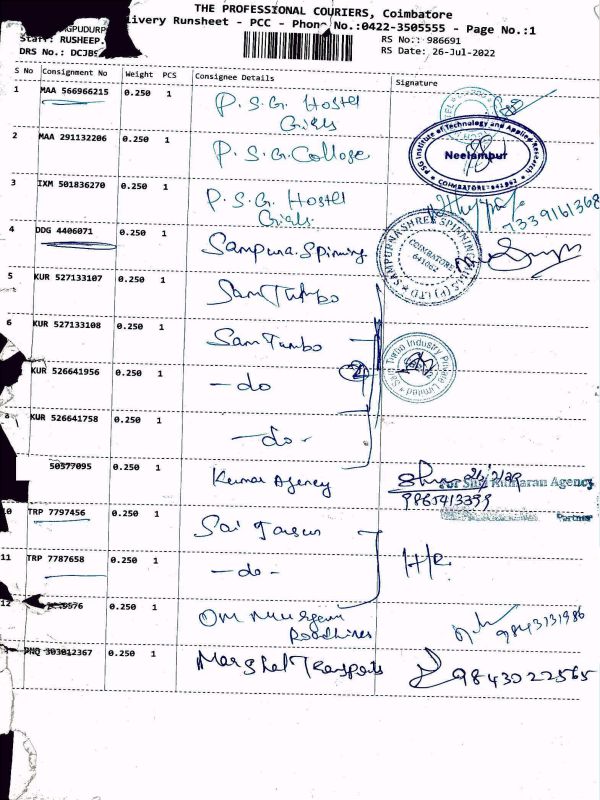 THE PROFESSIONAL COURIERS, Coimbatore
Delivery Runsheet - PCC - Phone No.:0422-3505555 - Page No.:1
RUSHEEP.
RS No.: 986691
DRS No.: DCJBS
RS Date: 26-Jul-2022
S No Consignment No Weight PCS Consignee Details Signature
1 MAA 566966215 0.250 1 P.S.G. Hostel
Girls
2 MAA 291132206 0.250 1 P.S.G. College
PSG Institute of Technology and Applied Research
Neelambur
COIMBATORE-641 062
3 IXM 501836270 0.250 1 P.S.G. Hostel
Girls
7339161368
4 DDG 4406071 0.250 1 Sampurna.Spinning
SAMPURNASHREE SPINNING MILLS (P) LTD
COIMBATORE
5 KUR 527133107 0.250 1 Sam Turbo
6 KUR 527133108 0.250 1 Sam Turbo
Sam Turbo Industry Private Limited
KUR 526641956 0.250 1 - do
4
8 KUR 526641758 0.250 1 - do -
50577095 0.250 1 Kumar Agency
For Shri Kumaran Agency
9865413399
Partner
10 TRP 7797456 0.250 1 Sai
H/R
11 TRP 7787658 0.250 1 - do -
12 0.250 1 OM Murugan
Roadlines
9843131986
PNQ 303012367 0.250 1 Marshal Transports
9843022565